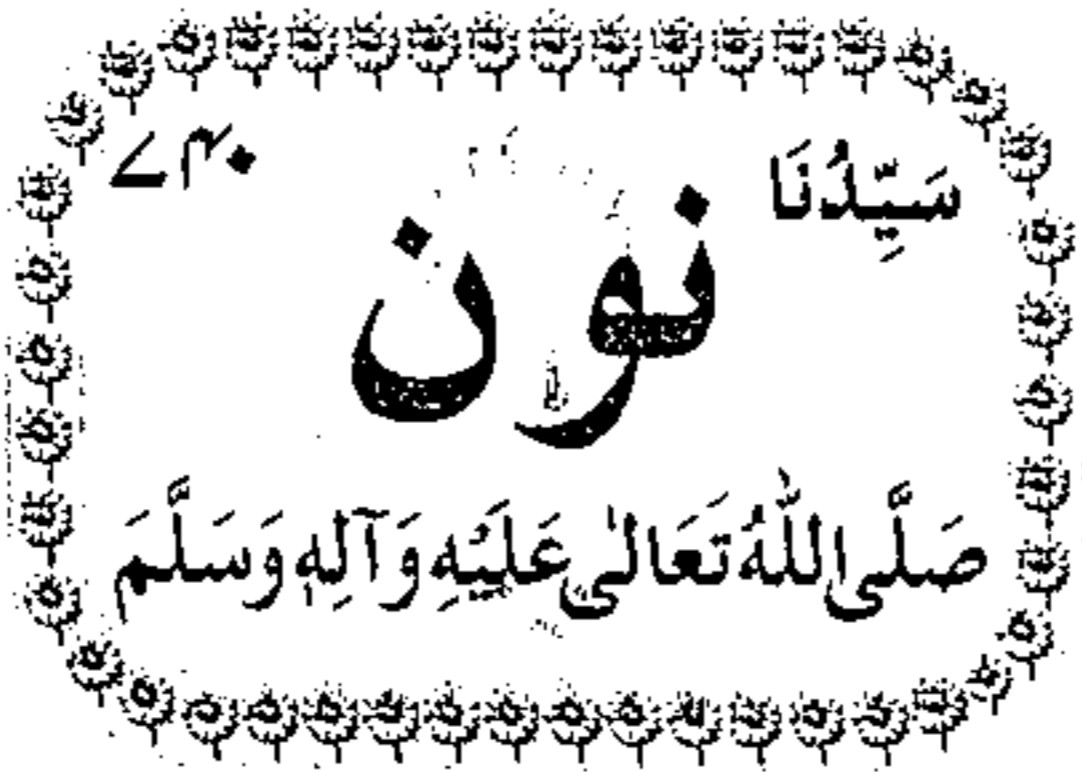 سَيِّدُنَا ۷۴۰
نون
صَلَّى اللّٰهُ تَعَالٰى عَلَيْهِ وَآلِهٖ وَسَلَّمَ